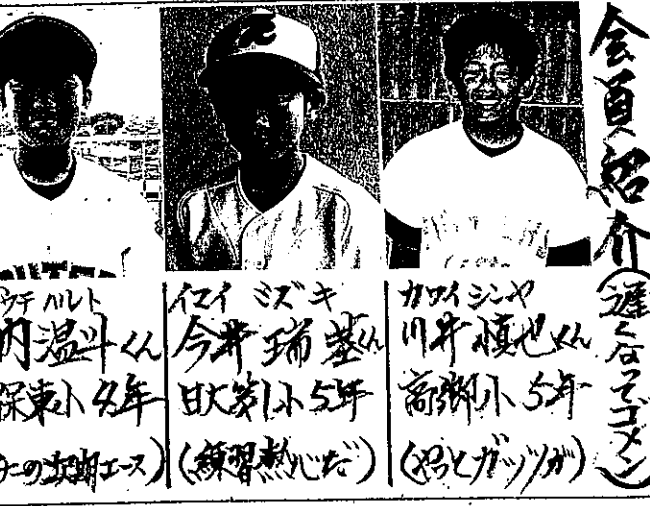 会員紹介(遅くなってゴメン)
カワイシンヤ
川井慎也くん
高郷小5年
(やっとガッツが)
イマイ ミズキ
今井瑞基くん
日大第1小5年
(練習熱心だ)
ウチ ハルト
内温斗くん
保東小4年
の次期エース)